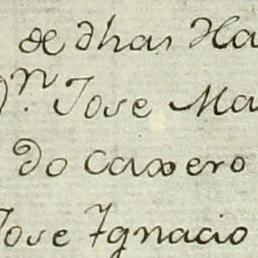 de dhas Ha
Dⁿ. Jose Ma
do Caxero
Jose Ygnacio